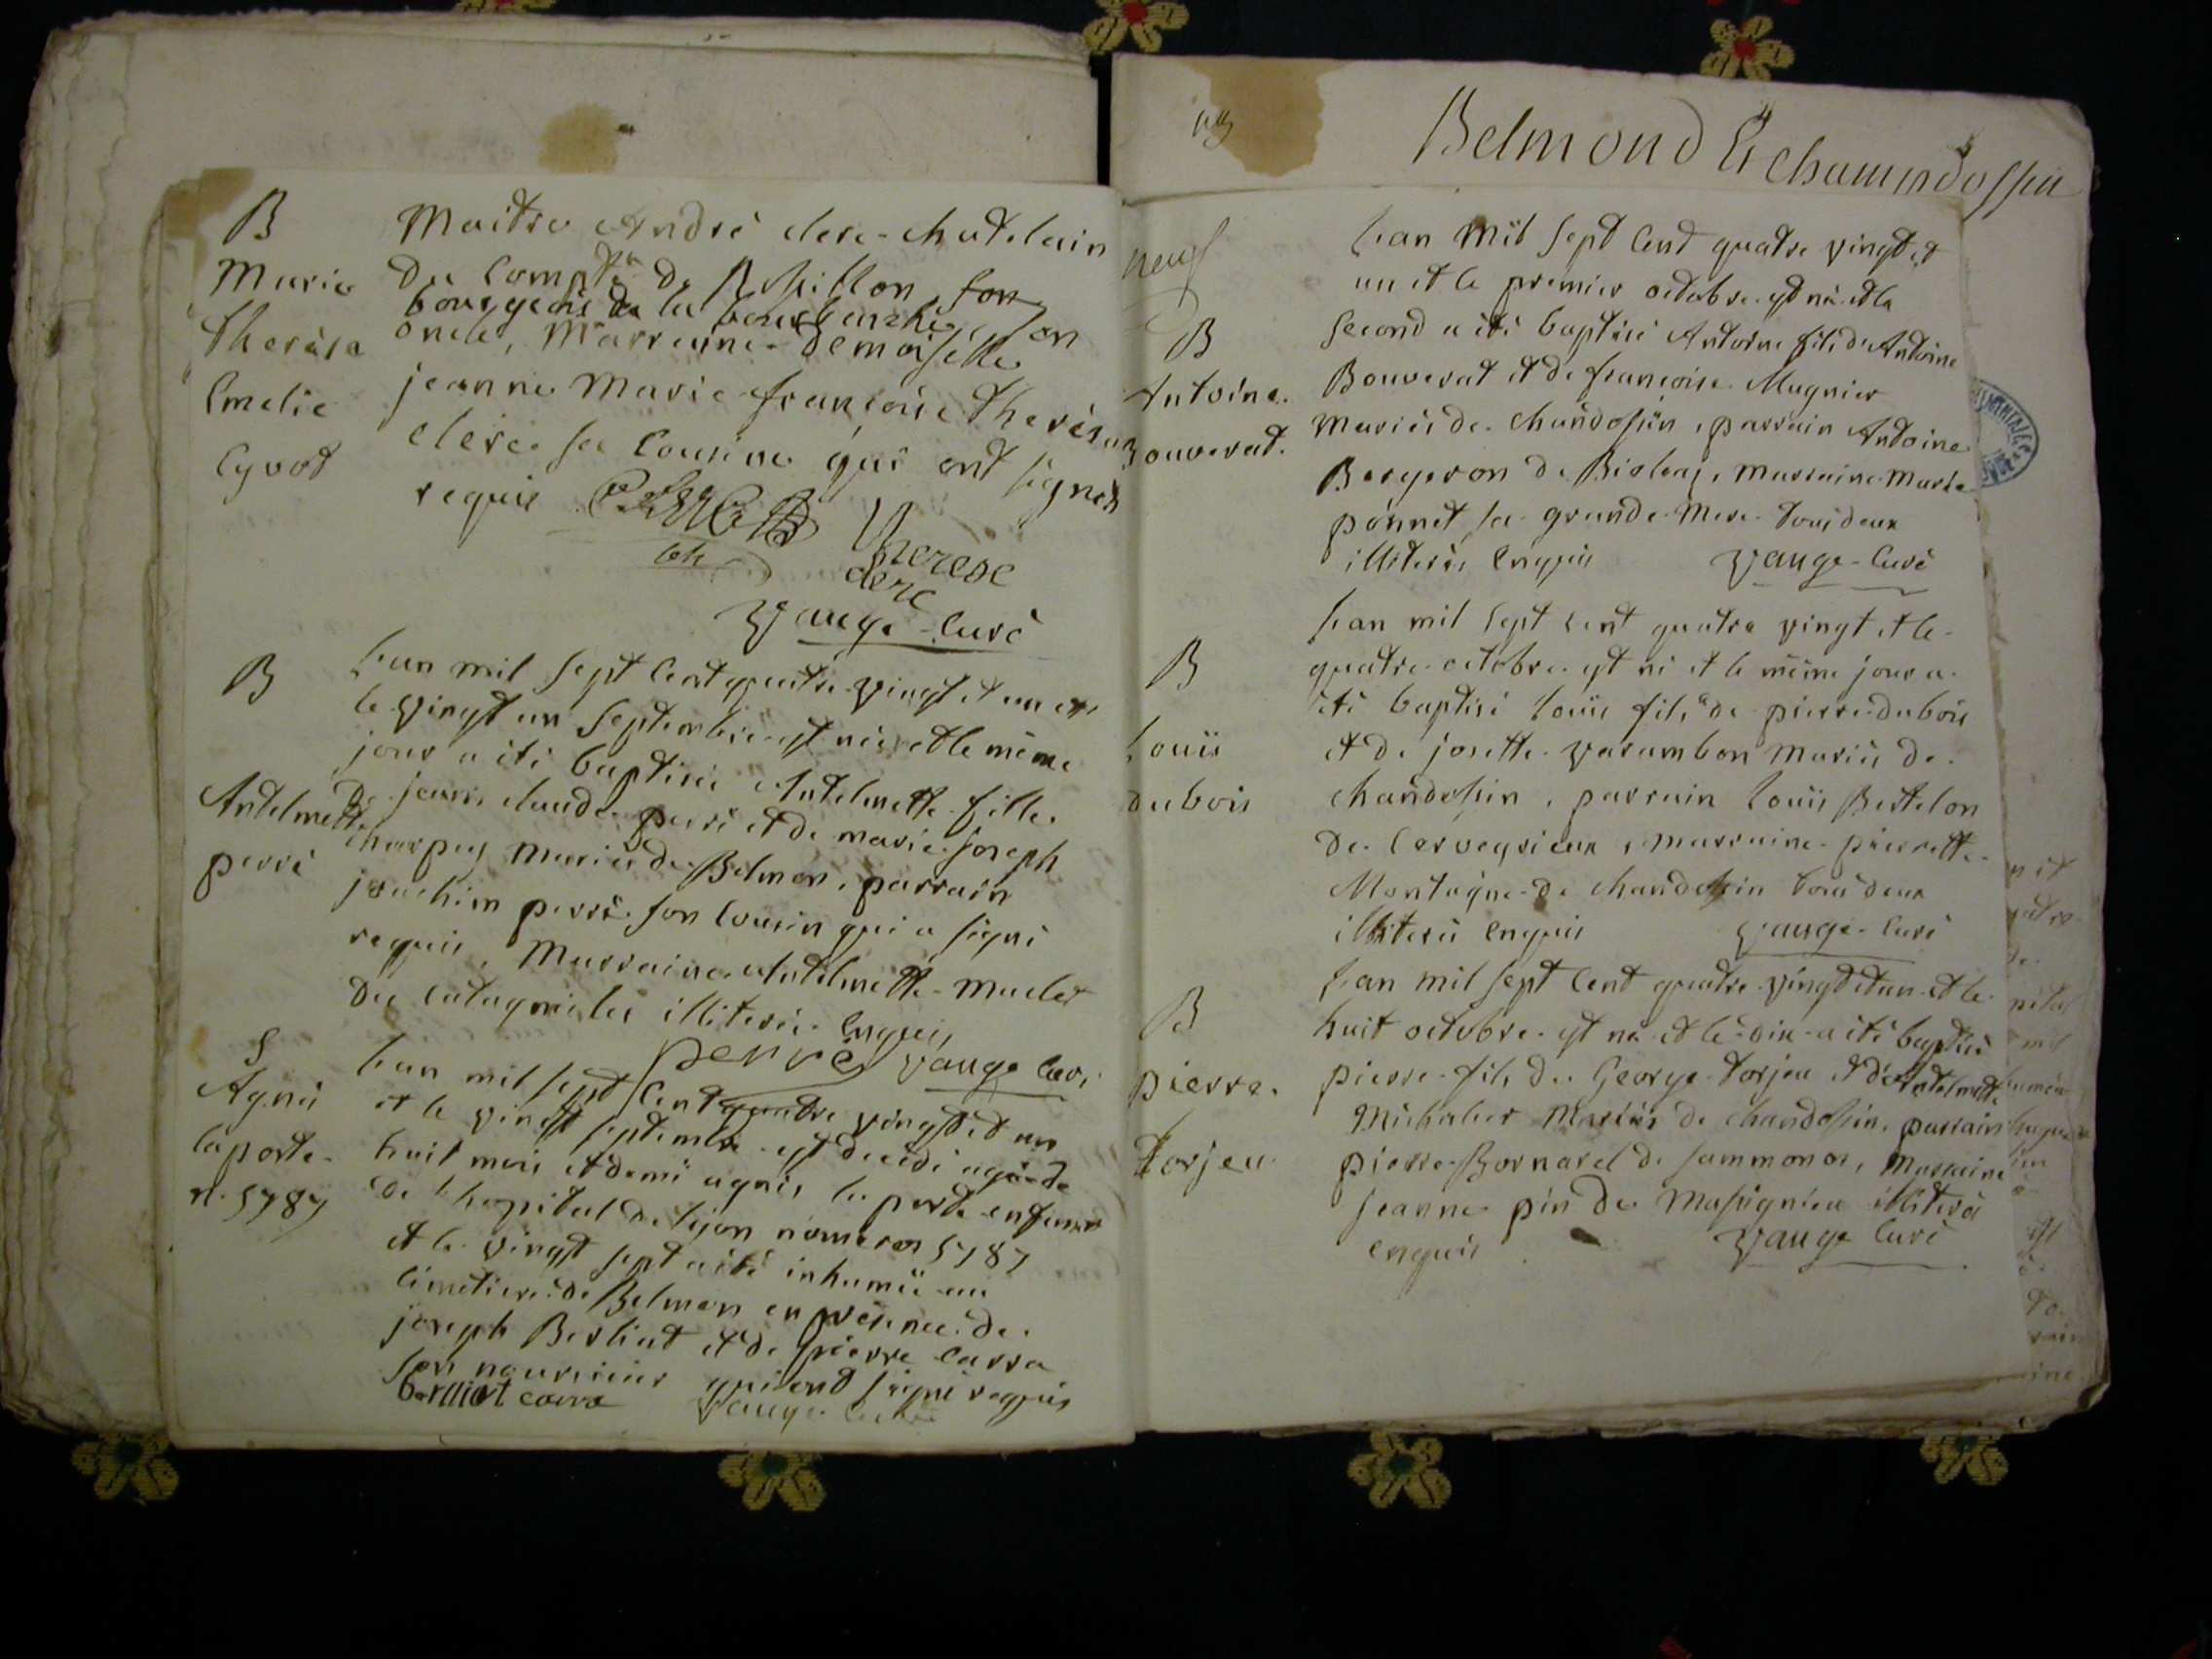 B
Marie
Therèse
Emelie
Cyvot
Maitre André clerc-chatelain
Du Compté De Rossillon
bourgeois de la
oncle, Marraine Demoiselle
jeanne Marie françoise Therése
clerc sa Cousine qui ont signés
requis
Therese
clerc
Vauge Curé
B
Antelmette
perré
L'an mil sept Cent quatre vingt et un et
le vingt un Septembre est née et le méme
jour a été baptisée Antelmette fille
De jean claude perré et de marie joseph
charpey Mariés de Belmon, parrain
joachim perré son Cousin qui a signé
requis, Marraine Antelmette Maclet
De illiterée Enquis
perré Vauge Curé
S
Agnés
laporte
n. 5787
L'an mil sept Cent quatre vingt et un
et le vingt septembre est décédé agée de
huit mois et demi agnés la porte enfant
De l'hopital de lyon 5787
et le vingt sept a été inhumée au
Cimetiere de Belmon en présence de
joseph Berliat et de pierre Carra
son nourricier qui ont signé requis
berliat carra Vauge Curé
Belmond Et chamndossin
neuf
B
Antoine
Bouverat.
L'an Mil sept Cent quatre vingt et
un et le premier octobre est né et le
second a été baptisé Antoine fils d'Antoine
Bouverat et de françoise Mugnier
Mariés de chandossin, parrain Antoine
Bergeron De Bioleaz, marraine Marie
ponnet sa grande Mere tous deux
illiterés Enquis Vauge Curé
B
Louis
dubois
L'an mil sept cent quatre vingt et le
quatre octobre est né et le méme jour a
été baptisé Louis fils de pierre dubois
et de josette varambon Mariés de
chandossin, parrain Louis Bertelon
De Cerveyrieux, marraine pierrette
Montagne de chandossin tous deux
illiterés Enquis Vauge Curé
B
pierre
Torjeu
L'an mil sept Cent quatre vingt et un et le
huit octobre est né et le dix a été baptisé
pierre fils de George Torjeu et d'Antelmette
Michalier Mariés de chandossin, parrain
pierre Bornarel de sammonos, Marraine
Jeanne pin De Massignieu illiterés
Enquis Vauge Curé